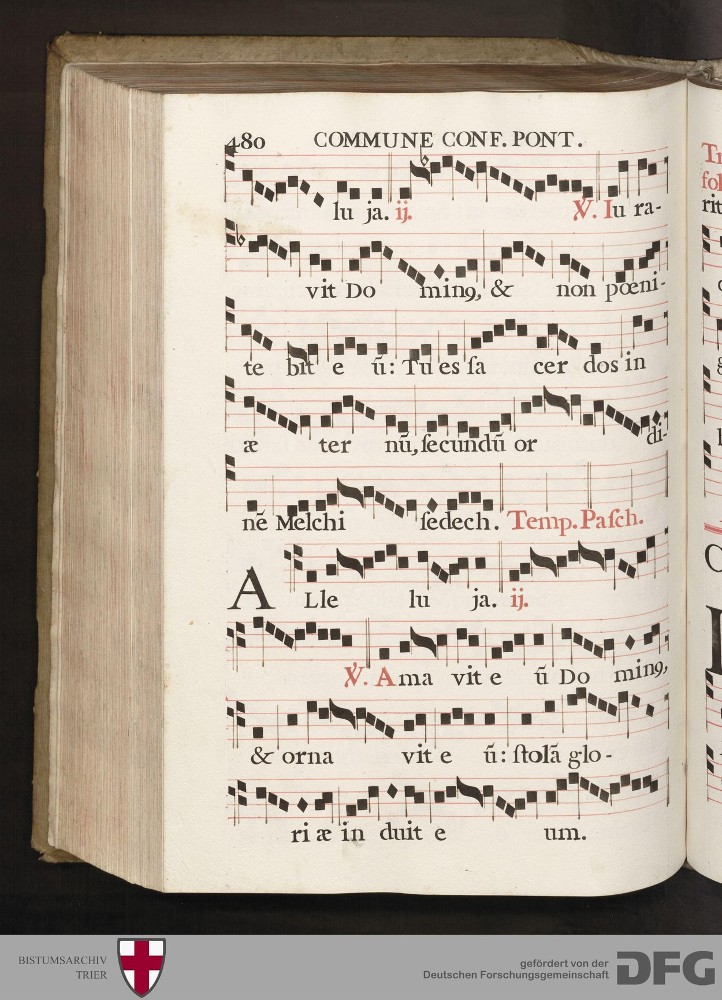 480 COMMUNE CONF. PONT.
lu ja. ij. ℣. Iu ra-
vit Do minꝰ, & non pœni-
te bit e ũ: Tu es ſa cer dos in
æ ter nũ, ſecundũ or di-
nẽ Melchi ſedech. Temp. Paſch.
A Lle lu ja. ij.
℣. Ama vit e ũ Do minꝰ,
& orna vit e ũ: ſtolã glo-
ri æ in duit e um.
Tr
fol
rit
BISTUMSARCHIV
TRIER
gefördert von der
Deutschen Forschungsgemeinschaft
DFG